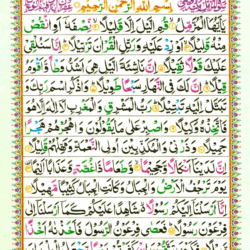 بِسْمِ اللّٰهِ الرَّحْمٰنِ الرَّحِيْمِ
يٰٓاَيُّهَا الْمُزَّمِّلُ قُمِ الَّيْلَ اِلَّا قَلِيْلًا نِّصْفَهٗٓ اَوِ انْقُصْ
مِنْهُ قَلِيْلًا اَوْ زِدْ عَلَيْهِ وَرَتِّلِ الْقُرْاٰنَ تَرْتِيْلًا اِنَّا سَنُلْقِيْ
عَلَيْكَ قَوْلًا ثَقِيْلًا اِنَّ نَاشِئَةَ الَّيْلِ هِيَ اَشَدُّ وَطْاً وَّاَقْوَمُ
قِيْلًا اِنَّ لَكَ فِي النَّهَارِ سَبْحًا طَوِيْلًا وَاذْكُرِ اسْمَ رَبِّكَ وَ
تَبَتَّلْ اِلَيْهِ تَبْتِيْلًا رَبُّ الْمَشْرِقِ وَالْمَغْرِبِ لَآ اِلٰهَ اِلَّا هُوَ
فَاتَّخِذْهُ وَكِيْلًا وَاصْبِرْ عَلٰى مَا يَقُوْلُوْنَ وَاهْجُرْهُمْ هَجْرًا
جَمِيْلًا وَذَرْنِيْ وَالْمُكَذِّبِيْنَ اُولِي النَّعْمَةِ وَمَهِّلْهُمْ قَلِيْلًا
اِنَّ لَدَيْنَآ اَنْكَالًا وَّجَحِيْمًا وَّطَعَامًا ذَا غُصَّةٍ وَّعَذَابًا اَلِيْمًا
يَوْمَ تَرْجُفُ الْاَرْضُ وَالْجِبَالُ وَكَانَتِ الْجِبَالُ كَثِيْبًا مَّهِيْلًا
اِنَّآ اَرْسَلْنَآ اِلَيْكُمْ رَسُوْلًا شَاهِدًا عَلَيْكُمْ كَمَآ اَرْسَلْنَآ اِلٰى
فِرْعَوْنَ رَسُوْلًا فَعَصٰى فِرْعَوْنُ الرَّسُوْلَ فَاَخَذْنٰهُ اَخْذًا